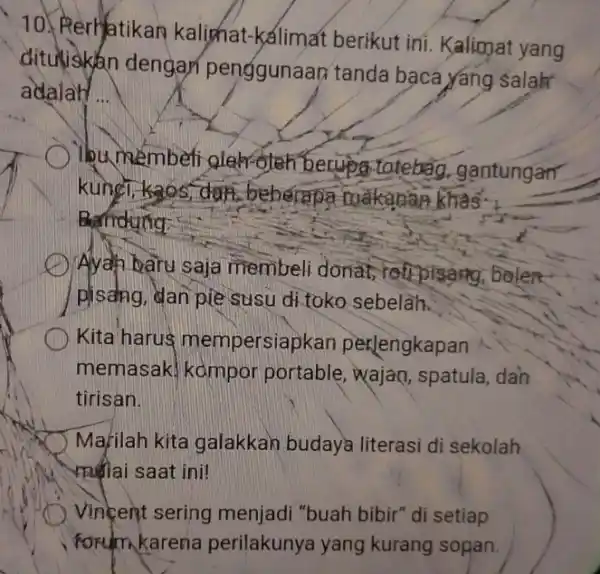 10. Perhatikan kalimat-kalimat berikut ini. Kalimat yang
dituliskan dengan penggunaan tanda baca yang salah
adalah ...
Ibu membeli oleh-oleh berupa totebag, gantungan
kunci, kaos, dan beberapa makanan khas
Bandung.
Ayah baru saja membeli donat, roti pisang, bolen
pisang, dan pie susu di toko sebelah.
Kita harus mempersiapkan perlengkapan
memasak! kompor portable, wajan, spatula, dan
tirisan.
Marilah kita galakkan budaya literasi di sekolah
mulai saat ini!
Vincent sering menjadi "buah bibir" di setiap
forum karena perilakunya yang kurang sopan.